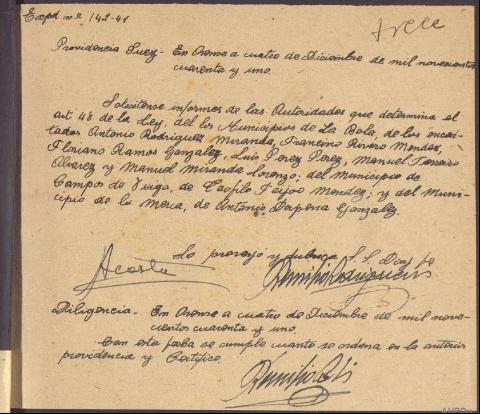 Expd nº 142-41
Trece
Providencia Juez - En Orense a cuatro de Diciembre de mil novecientos
cuarenta y uno.
Solicitense informes de las Autoridades que determina el
art 48 de la Ley, del los Municipios de La Bola, de los encar-
tados Antonio Rodriguez Miranda, Francisco Rivero Mendez,
Floriano Ramos Gonzalez, Luis Perez Perez, Manuel Ferreiro
Alvarez y Manuel Miranda Lorenzo; del Municipio de
Campo de Suga, de Teofilo Feijoo Mendez; y del Muni-
cipio de la Merca, de Antonio Dapena Gonzalez.
Lo proveyó y rubrica S. S. Doy fe
Acosta
Remigio
Diligencia - En Orense a cuatro de Diciembre de mil nove-
cientos cuarenta y uno.
Con esta fecha se cumple cuanto se ordena en la anterior
providencia y Certifico.
Remigio